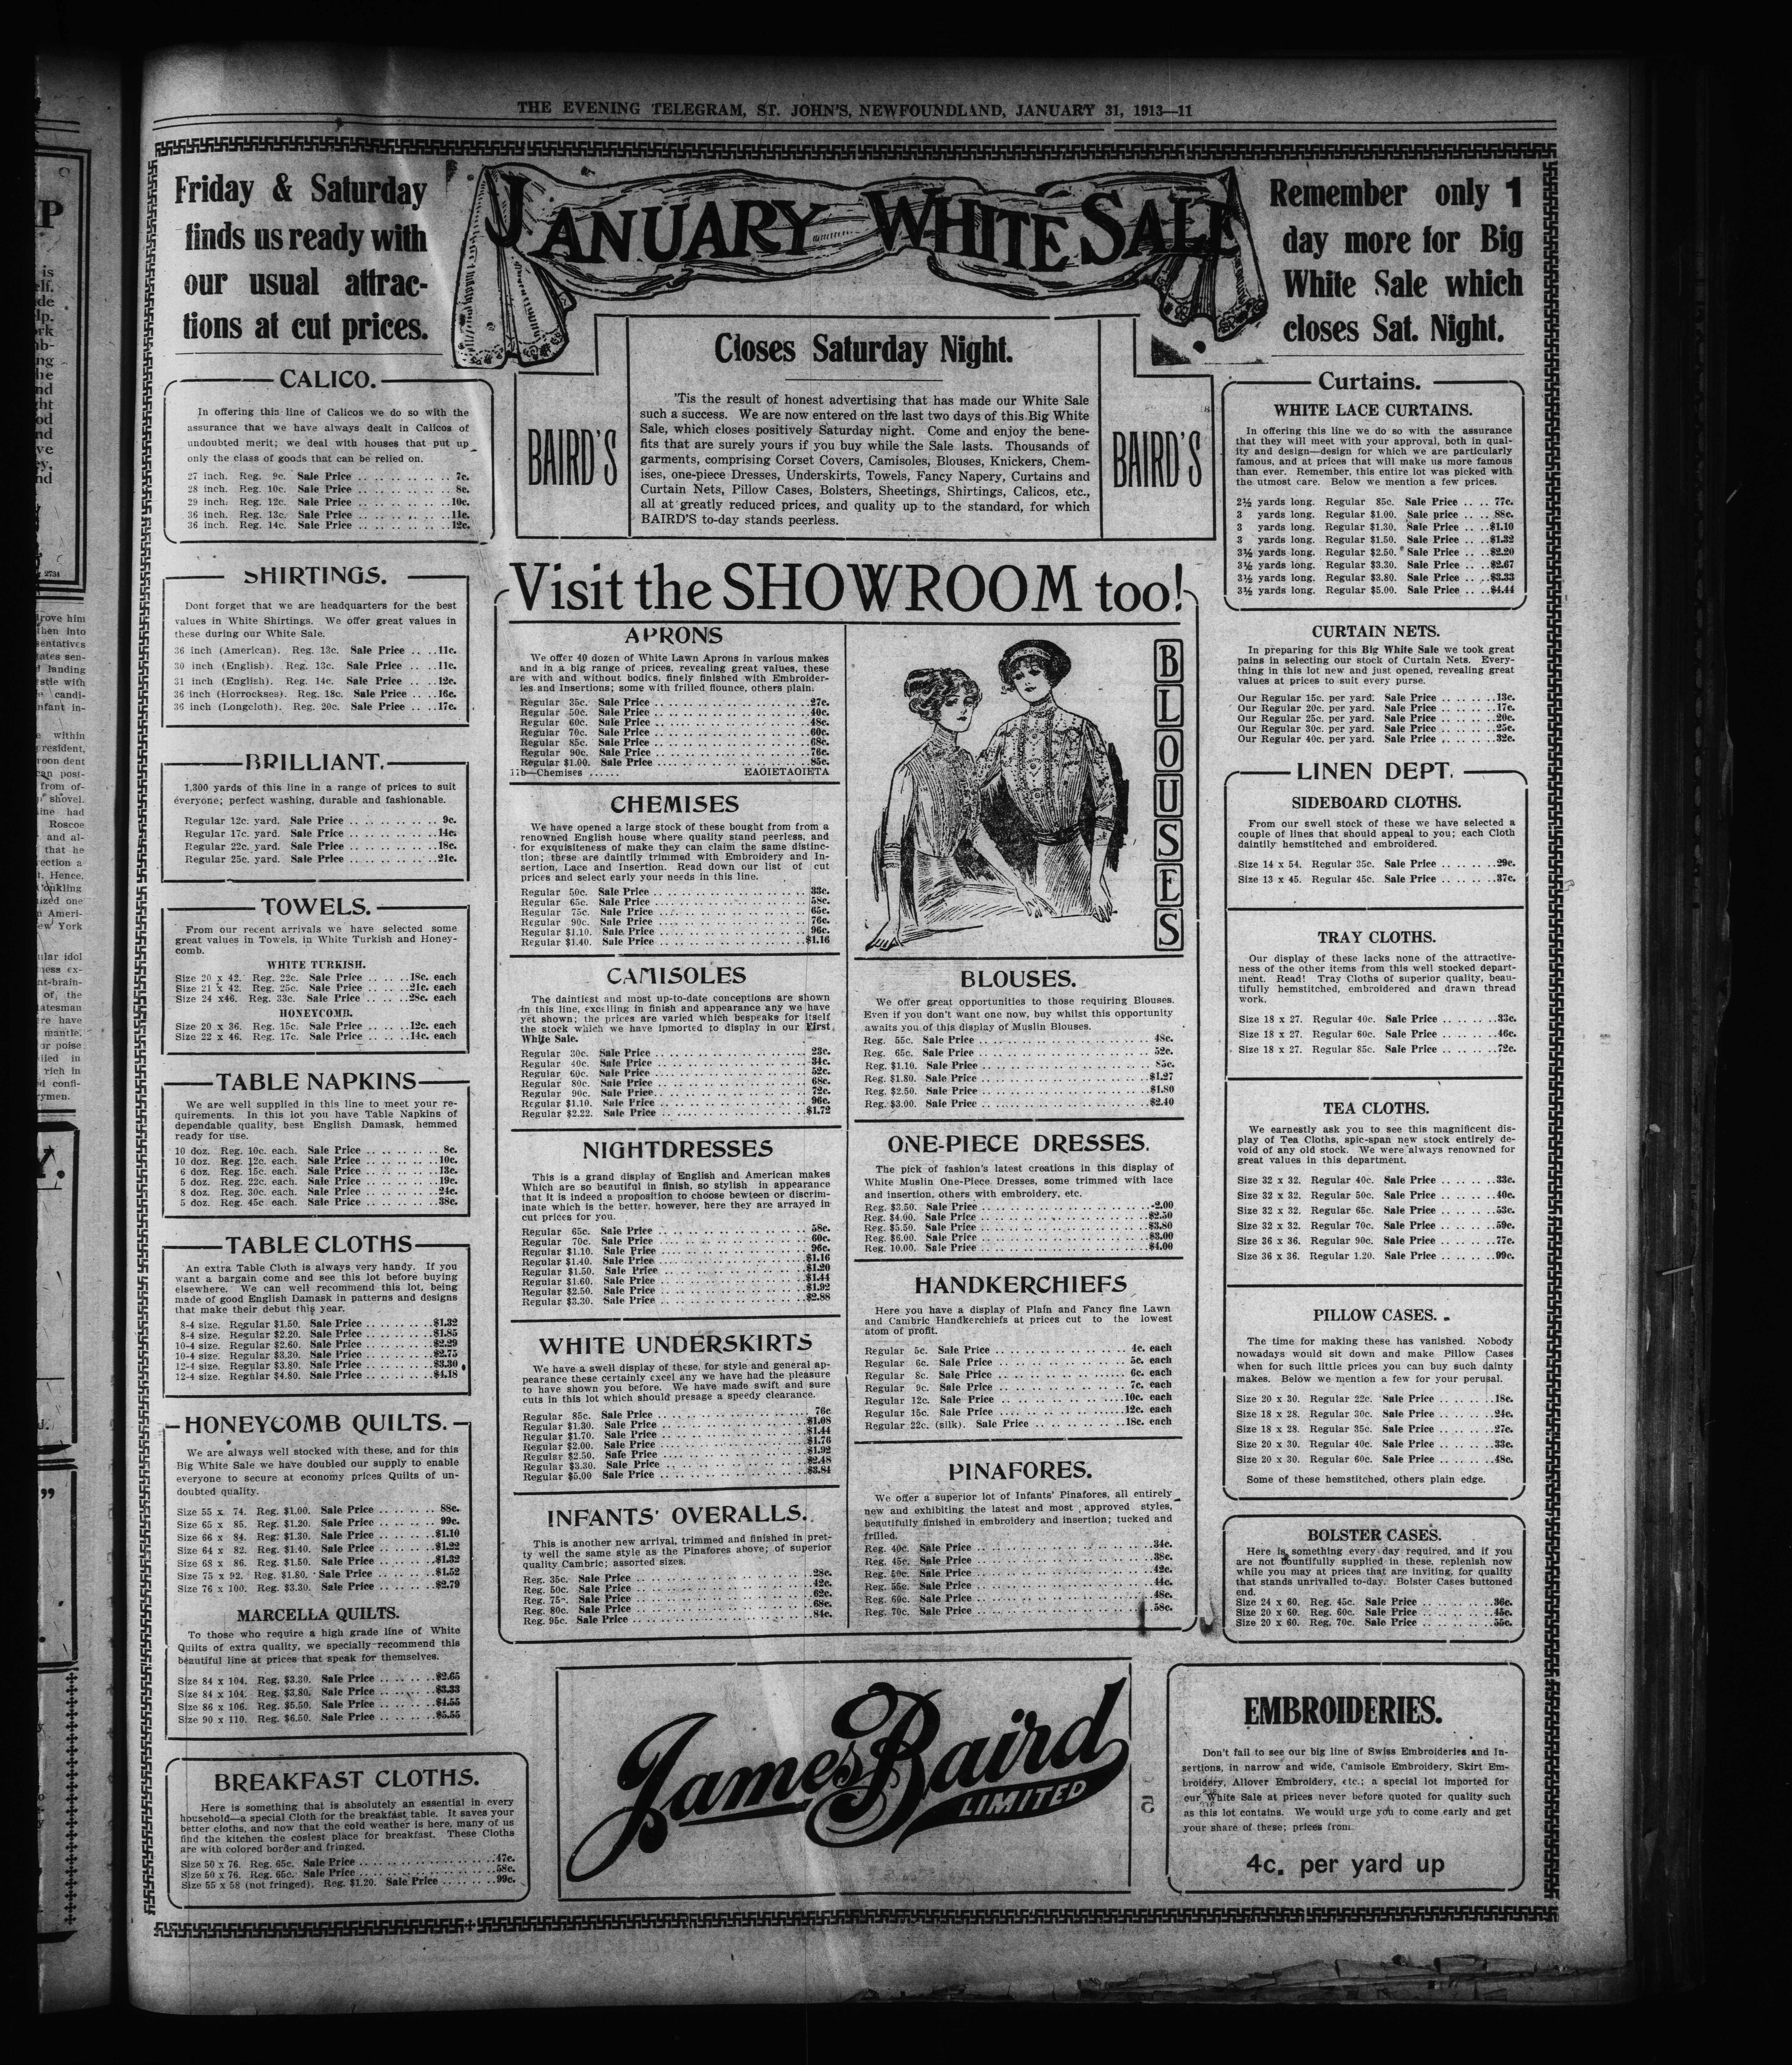 THE EVENING TELEGRAM, ST. JOHN'S, NEWFOUNDLAND, JANUARY 31, 1913—11
Friday & Saturday
finds us ready with
our usual attrac-
tions at cut prices.
JANUARY WHITE SALE
Remember only 1
day more for Big
White Sale which
closes Sat. Night.
BAIRD'S
Closes Saturday Night.
'Tis the result of honest advertising that has made our White Sale
such a success. We are now entered on the last two days of this Big White
Sale, which closes positively Saturday night. Come and enjoy the bene-
fits that are surely yours if you buy while the Sale lasts. Thousands of
garments, comprising Corset Covers, Camisoles, Blouses, Knickers, Chem-
ises, one-piece Dresses, Underskirts, Towels, Fancy Napery, Curtains and
Curtain Nets, Pillow Cases, Bolsters, Sheetings, Shirtings, Calicos, etc.,
all at greatly reduced prices, and quality up to the standard, for which
BAIRD'S to-day stands peerless.
BAIRD'S
CALICO.
In offering this line of Calicos we do so with the
assurance that we have always dealt in Calicos of
undoubted merit; we deal with houses that put up
only the class of goods that can be relied on.
27 inch. Reg. 9c. Sale Price .. .. .. .. .. 7c.
28 inch. Reg. 10c. Sale Price .. .. .. .. .. 8c.
29 inch. Reg. 12c. Sale Price .. .. .. .. ..10c.
36 inch. Reg. 13c. Sale Price .. .. .. .. ..11c.
36 inch. Reg. 14c. Sale Price .. .. .. .. ..12c.
SHIRTINGS.
Dont forget that we are headquarters for the best
values in White Shirtings. We offer great values in
these during our White Sale.
36 inch (American). Reg. 13c. Sale Price .. ..11c.
30 inch (English). Reg. 13c. Sale Price .. ..11c.
31 inch (English). Reg. 14c. Sale Price .. ..12c.
36 inch (Horrockses). Reg. 18c. Sale Price .. ..16c.
36 inch (Longcloth). Reg. 20c. Sale Price .. ..17c.
BRILLIANT.
1,300 yards of this line in a range of prices to suit
everyone; perfect washing, durable and fashionable.
Regular 12c. yard. Sale Price .. .. .. .. .. 9c.
Regular 17c. yard. Sale Price .. .. .. .. ..14c.
Regular 22c. yard. Sale Price .. .. .. .. ..18c.
Regular 25c. yard. Sale Price .. .. .. .. ..21c.
TOWELS.
From our recent arrivals we have selected some
great values in Towels, in White Turkish and Honey-
comb.
WHITE TURKISH.
Size 20 x 42. Reg. 22c. Sale Price .. .. ..18c. each
Size 21 x 42. Reg. 25c. Sale Price .. .. ..21c. each
Size 24 x46. Reg. 33c. Sale Price .. .. ..28c. each
HONEYCOMB.
Size 20 x 36. Reg. 15c. Sale Price .. .. ..12c. each
Size 22 x 46. Reg. 17c. Sale Price .. .. ..14c. each
TABLE NAPKINS
We are well supplied in this line to meet your re-
quirements. In this lot you have Table Napkins of
dependable quality, best English Damask, hemmed
ready for use.
10 doz. Reg. 10c. each. Sale Price .. .. .. .. 8c.
10 doz. Reg. 12c. each. Sale Price .. .. .. ..10c.
6 doz. Reg. 15c. each. Sale Price .. .. .. ..13c.
5 doz. Reg. 22c. each. Sale Price .. .. .. ..19c.
8 doz. Reg. 30c. each. Sale Price .. .. .. ..24c.
5 doz. Reg. 45c each. Sale Price .. .. .. ..38c.
TABLE CLOTHS
An extra Table Cloth is always very handy. If you
want a bargain come and see this lot before buying
elsewhere. We can well recommend this lot, being
made of good English Damask in patterns and designs
that make their debut this year.
8-4 size. Regular $1.50. Sale Price .. .. .. ..$1.32
8-4 size. Regular $2.20. Sale Price .. .. .. ..$1.85
10-4 size. Regular $2.60. Sale Price .. .. .. ..$2.29
10-4 size. Regular $3.30. Sale Price .. .. .. ..$2.75
12-4 size. Regular $3.80. Sale Price .. .. .. ..$3.30
12-4 size. Regular $4.80. Sale Price .. .. .. ..$4.18
HONEYCOMB QUILTS.
We are always well stocked with these, and for this
Big White Sale we have doubled our supply to enable
everyone to secure at economy prices Quilts of un-
doubted quality.
Size 55 x 74. Reg. $1.00. Sale Price .. .. .. 88c.
Size 65 x 85. Reg. $1.20. Sale Price .. .. .. 99c.
Size 66 x 84. Reg. $1.30. Sale Price .. .. ..$1.10
Size 64 x 82. Reg. $1.40. Sale Price .. .. ..$1.22
Size 68 x 86. Reg. $1.50. Sale Price .. .. ..$1.32
Size 75 x 92. Reg. $1.80. Sale Price .. .. ..$1.52
Size 76 x 100. Reg. $3.30. Sale Price .. .. ..$2.79
MARCELLA QUILTS.
To those who require a high grade line of White
Quilts of extra quality, we specially recommend this
beautiful line at prices that speak for themselves.
Size 84 x 104. Reg. $3.30. Sale Price .. .. ..$2.65
Size 84 x 104. Reg. $3.80. Sale Price .. .. ..$3.33
Size 86 x 106. Reg. $5.50. Sale Price .. .. ..$4.55
Size 90 x 110. Reg. $6.50. Sale Price .. .. ..$5.55
BREAKFAST CLOTHS.
Here is something that is absolutely an essential in every
household—a special Cloth for the breakfast table. It saves your
better cloths, and now that the cold weather is here, many of us
find the kitchen the cosiest place for breakfast. These Cloths
are with colored border and fringed.
Size 50 x 76. Reg. 65c. Sale Price .. .. .. .. .. ..47c.
Size 50 x 76. Reg. 65c. Sale Price .. .. .. .. .. ..58c.
Size 55 x 58 (not fringed). Reg. $1.20. Sale Price .. .. .. ..99c.
Visit the SHOWROOM too!
APRONS
We offer 40 dozen of White Lawn Aprons in various makes
and in a big range of prices, revealing great values, these
are with and without bodics, finely finished with Embroider-
ies and Insertions; some with frilled flounce, others plain.
Regular 35c. Sale Price .. .. .. .. .. .. .. ..27c.
Regular 50c. Sale Price .. .. .. .. .. .. .. ..40c.
Regular 60c. Sale Price .. .. .. .. .. .. .. ..48c.
Regular 70c. Sale Price .. .. .. .. .. .. .. ..60c.
Regular 85c. Sale Price .. .. .. .. .. .. .. ..68c.
Regular 90c. Sale Price .. .. .. .. .. .. .. ..76c.
Regular $1.00. Sale Price .. .. .. .. .. .. .. ..85c.
11b—Chemises ...... EAOIETAOIETA
CHEMISES
We have opened a large stock of these bought from from a
renowned English house where quality stand peerless, and
for exquisiteness of make they can claim the same distinc-
tion; these are daintily trimmed with Embroidery and In-
sertion, Lace and Insertion. Read down our list of cut
prices and select early your needs in this line.
Regular 50c. Sale Price .. .. .. .. .. .. .. ..33c.
Regular 65c. Sale Price .. .. .. .. .. .. .. ..58c.
Regular 75c. Sale Price .. .. .. .. .. .. .. ..65c.
Regular 90c. Sale Price .. .. .. .. .. .. .. ..76c.
Regular $1.10. Sale Price .. .. .. .. .. .. .. ..96c.
Regular $1.40. Sale Price .. .. .. .. .. .. .. ..$1.16
CAMISOLES
The daintiest and most up-to-date conceptions are shown
in this line, excelling in finish and appearance any we have
yet shown; the prices are varied which bespeaks for itself
the stock which we have ipmorted to display in our First
White Sale.
Regular 30c. Sale Price .. .. .. .. .. .. .. ..23c.
Regular 40c. Sale Price .. .. .. .. .. .. .. ..34c.
Regular 60c. Sale Price .. .. .. .. .. .. .. ..52c.
Regular 80c. Sale Price .. .. .. .. .. .. .. ..68c.
Regular 90c. Sale Price .. .. .. .. .. .. .. ..72c.
Regular $1.10. Sale Price .. .. .. .. .. .. .. ..96c.
Regular $2.22. Sale Price .. .. .. .. .. .. .. ..$1.72
NIGHTDRESSES
This is a grand display of English and American makes
Which are so beautiful in finish, so stylish in appearance
that it is indeed a proposition to choose bewteen or discrim-
inate which is the better, however, here they are arrayed in
cut prices for you.
Regular 65c. Sale Price .. .. .. .. .. .. .. ..58c.
Regular 70c. Sale Price .. .. .. .. .. .. .. ..60c.
Regular $1.10. Sale Price .. .. .. .. .. .. .. ..96c.
Regular $1.40. Sale Price .. .. .. .. .. .. .. ..$1.16
Regular $1.50. Sale Price .. .. .. .. .. .. .. ..$1.20
Regular $1.60. Sale Price .. .. .. .. .. .. .. ..$1.44
Regular $2.50. Sale Price .. .. .. .. .. .. .. ..$1.92
Regular $3.30. Sale Price .. .. .. .. .. .. .. ..$2.88
WHITE UNDERSKIRTS
We have a swell display of these, for style and general ap-
pearance these certainly excel any we have had the pleasure
to have shown you before. We have made swift and sure
cuts in this lot which should presage a speedy clearance.
Regular 85c. Sale Price .. .. .. .. .. .. .. .. 76c
Regular $1.30. Sale Price .. .. .. .. .. .. .. ..$1.08
Regular $1.70. Sale Price .. .. .. .. .. .. .. ..$1.44
Regular $2.00. Sale Price .. .. .. .. .. .. .. ..$1.76
Regular $2.50. Sale Price .. .. .. .. .. .. .. ..$1.92
Regular $3.30. Sale Price .. .. .. .. .. .. .. ..$2.48
Regular $5.00 Sale Price .. .. .. .. .. .. .. ..$3.84
INFANTS' OVERALLS.
This is another new arrival, trimmed and finished in pret-
ty well the same style as the Pinafores above; of superior
quality Cambric; assorted sizes.
Reg. 35c. Sale Price .. .. .. .. .. .. .. .. ..28c.
Reg. 50c. Sale Price .. .. .. .. .. .. .. .. ..42c.
Reg. 75c. Sale Price .. .. .. .. .. .. .. .. ..62c.
Reg. 80c. Sale Price .. .. .. .. .. .. .. .. ..68c.
Reg. 95c. Sale Price .. .. .. .. .. .. .. .. ..84c.
BLOUSES
BLOUSES.
We offer great opportunities to those requiring Blouses.
Even if you don't want one now, buy whilst this opportunity
awaits you of this display of Muslin Blouses.
Reg. 55c. Sale Price .. .. .. .. .. .. .. .. ..48c.
Reg. 65c. Sale Price .. .. .. .. .. .. .. .. ..52c.
Reg. $1.10. Sale Price .. .. .. .. .. .. .. .. 85c.
Reg. $1.80. Sale Price .. .. .. .. .. .. .. ..$1.27
Reg. $2.50. Sale Price .. .. .. .. .. .. .. ..$1.80
Reg. $3.00. Sale Price .. .. .. .. .. .. .. ..$2.40
ONE-PIECE DRESSES.
The pick of fashion's latest creations in this display of
White Muslin One-Piece Dresses, some trimmed with lace
and insertion, others with embroidery, etc.
Reg. $3.50. Sale Price .. .. .. .. .. .. .. ..-2.00
Reg. $4.00. Sale Price .. .. .. .. .. .. .. ..$2.50
Reg. $5.50. Sale Price .. .. .. .. .. .. .. ..$3.80
Reg. $6.00. Sale Price .. .. .. .. .. .. .. ..$3.00
Reg. 10.00. Sale Price .. .. .. .. .. .. .. ..$4.00
HANDKERCHIEFS
Here you have a display of Plain and Fancy fine Lawn
and Cambric Handkerchiefs at prices cut to the lowest
atom of profit.
Regular 5c. Sale Price .. .. .. .. .. .. .. 4c. each
Regular 6c. Sale Price .. .. .. .. .. .. .. 5c. each
Regular 8c. Sale Price .. .. .. .. .. .. .. 6c. each
Regular 9c. Sale Price .. .. .. .. .. .. .. 7c. each
Regular 12c. Sale Price .. .. .. .. .. .. ..10c. each
Regular 15c. Sale Price .. .. .. .. .. .. ..12c. each
Regular 22c. (silk). Sale Price .. .. .. .. ..18c. each
PINAFORES.
We offer a superior lot of Infants' Pinafores, all entirely
new and exhibiting the latest and most approved styles,
beautifully finished in embroidery and insertion; tucked and
frilled.
Reg. 40c. Sale Price .. .. .. .. .. .. .. .. ..34c.
Reg. 45c. Sale Price .. .. .. .. .. .. .. .. ..38c.
Reg. 50c. Sale Price .. .. .. .. .. .. .. .. ..42c.
Reg. 55c. Sale Price .. .. .. .. .. .. .. .. ..44c.
Reg. 60c. Sale Price .. .. .. .. .. .. .. .. ..48c.
Reg. 70c. Sale Price .. .. .. .. .. .. .. .. ..58c.
Curtains.
WHITE LACE CURTAINS.
In offering this line we do so with the assurance
that they will meet with your approval, both in qual-
ity and design—design for which we are particularly
famous, and at prices that will make us more famous
than ever. Remember, this entire lot was picked with
the utmost care. Below we mention a few prices.
2½ yards long. Regular 85c. Sale Price .. .. 77c.
3 yards long. Regular $1.00. Sale price .. .. 88c.
3 yards long. Regular $1.30. Sale Price .. ..$1.10
3 yards long. Regular $1.50. Sale Price .. ..$1.32
3½ yards long. Regular $2.50. Sale Price .. ..$2.20
3½ yards long. Regular $3.30. Sale Price .. ..$2.67
3½ yards long. Regular $3.80. Sale Price .. ..$3.33
3½ yards long. Regular $5.00. Sale Price .. ..$4.44
CURTAIN NETS.
In preparing for this Big White Sale we took great
pains in selecting our stock of Curtain Nets. Every-
thing in this lot new and just opened, revealing great
values at prices to suit every purse.
Our Regular 15c. per yard. Sale Price .. .. .. ..13c.
Our Regular 20c. per yard. Sale Price .. .. .. ..17c.
Our Regular 25c. per yard. Sale Price .. .. .. ..20c.
Our Regular 30c. per yard. Sale Price .. .. .. ..25c.
Our Regular 40c. per yard. Sale Price .. .. .. ..32c.
LINEN DEPT.
SIDEBOARD CLOTHS.
From our swell stock of these we have selected a
couple of lines that should appeal to you; each Cloth
daintily hemstitched and embroidered.
Size 14 x 54. Regular 35c. Sale Price .. .. .. ..29c.
Size 13 x 45. Regular 45c. Sale Price .. .. .. ..37c.
TRAY CLOTHS.
Our display of these lacks none of the attractive-
ness of the other items from this well stocked depart-
ment. Read! Tray Cloths of superior quality, beau-
tifully hemstitched, embroidered and drawn thread
work.
Size 18 x 27. Regular 40c. Sale Price .. .. .. ..33c.
Size 18 x 27. Regular 60c. Sale Price .. .. .. ..46c.
Size 18 x 27. Regular 85c. Sale Price .. .. .. ..72c.
TEA CLOTHS.
We earnestly ask you to see this magnificent dis-
play of Tea Cloths, spic-span new stock entirely de-
void of any old stock. We were always renowned for
great values in this department.
Size 32 x 32. Regular 40c. Sale Price .. .. .. ..33c.
Size 32 x 32. Regular 50c. Sale Price .. .. .. ..40c.
Size 32 x 32. Regular 65c. Sale Price .. .. .. ..53c.
Size 32 x 32. Regular 70c. Sale Price .. .. .. ..59c.
Size 36 x 36. Regular 90c. Sale Price .. .. .. ..77c.
Size 36 x 36. Regular 1.20. Sale Price .. .. .. ..99c.
PILLOW CASES.
The time for making these has vanished. Nobody
nowadays would sit down and make Pillow Cases
when for such little prices you can buy such dainty
makes. Below we mention a few for your perusal.
Size 20 x 30. Regular 22c. Sale Price .. .. .. ..18c.
Size 18 x 28. Regular 30c. Sale Price .. .. .. ..24c.
Size 18 x 28. Regular 35c. Sale Price .. .. .. ..27c.
Size 20 x 30. Regular 40c. Sale Price .. .. .. ..33c.
Size 20 x 30. Regular 60c. Sale Price .. .. .. ..48c.
Some of these hemstitched, others plain edge.
BOLSTER CASES.
Here is something every day required, and if you
are not bountifully supplied in these, replenish now
while you may at prices that are inviting, for quality
that stands unrivalled to-day. Bolster Cases buttoned
end.
Size 24 x 60. Reg. 45c. Sale Price .. .. .. .. ..36c.
Size 20 x 60. Reg. 60c. Sale Price .. .. .. .. ..45c.
Size 20 x 60. Reg. 70c. Sale Price .. .. .. .. ..55c.
James Baird
LIMITED
EMBROIDERIES.
Don't fail to see our big line of Swiss Embroideries and In-
sertions, in narrow and wide, Camisole Embroidery, Skirt Em-
broidery, Allover Embroidery, etc.; a special lot imported for
our White Sale at prices never before quoted for quality such
as this lot contains. We would urge you to come early and get
your share of these; prices from
4c. per yard up